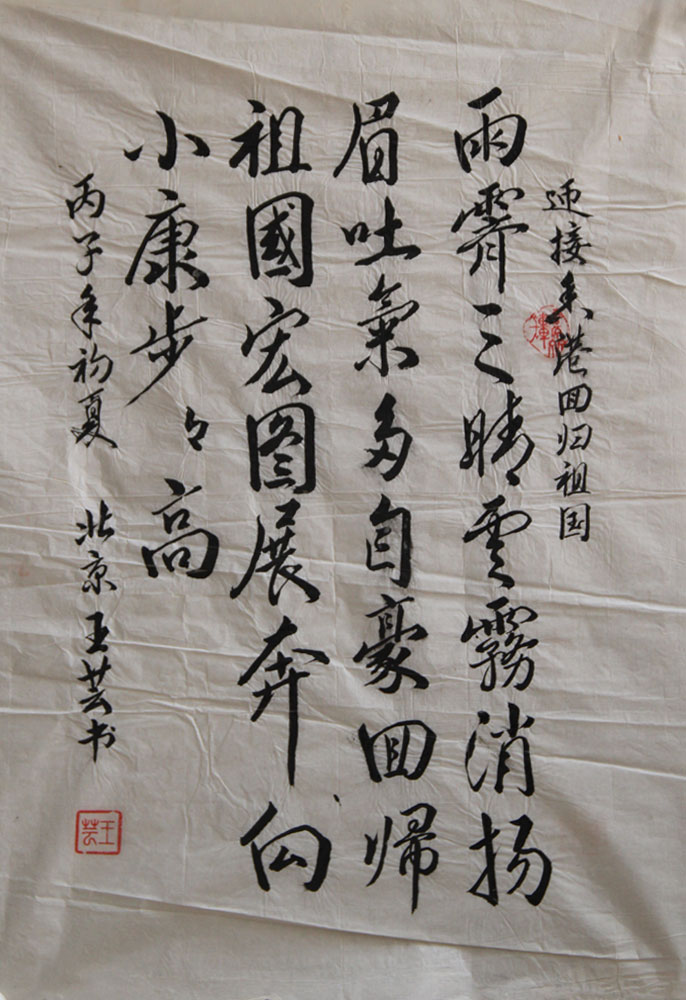 迎接香港回归祖国
雨霽天晴雲霧消扬
眉吐氣多自豪回歸
祖國宏图展奔向
小康步々高
丙子年初夏 北京王芸书
王芸